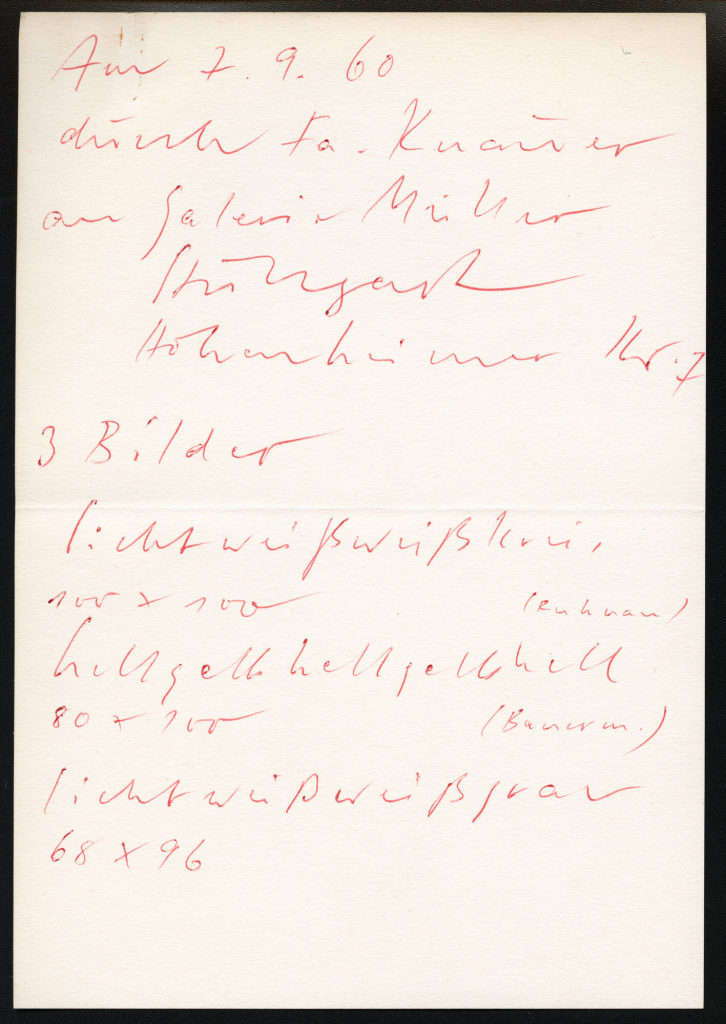 Am 7. 9. 60
durch Fa. Knauer
an Galerie Müller
Stuttgart
Hohenheimer Str. 7
3 Bilder
lichtweißweißkreis
100 x 100
hellgelbhellgelbhell
80 x 100
lichtweißweißgrau
68 x 96